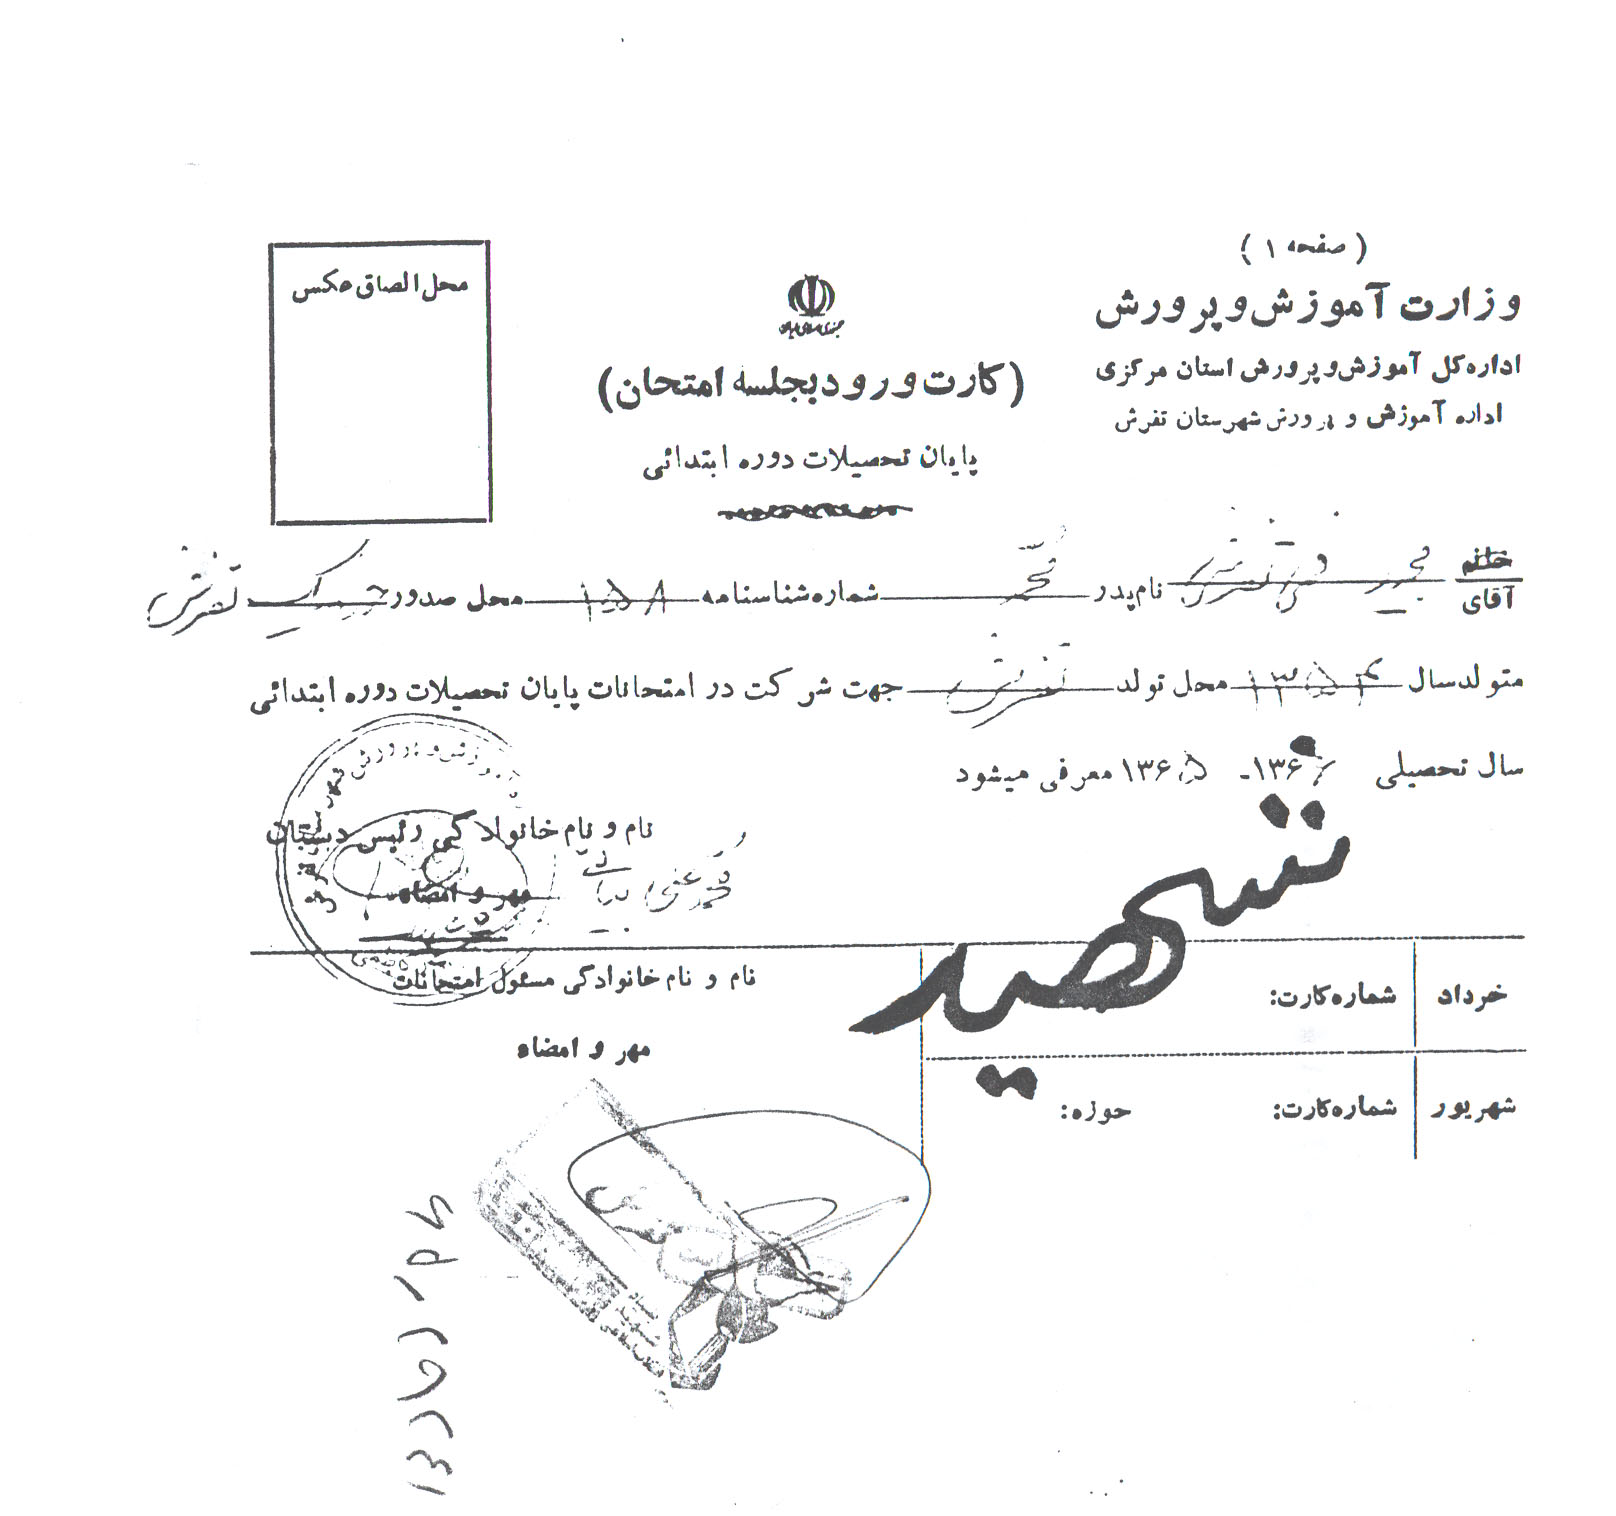 ( صفحه ۱ )
وزارت آموزش و پرورش
اداره کل آموزش و پرورش استان مرکزی
اداره آموزش و پرورش شهرستان تفرش
محل الصاق عکس
جمهوری اسلامی ایران
(کارت ورود بجلسه امتحان)
پایان تحصیلات دوره ابتدائی
خانم
آقای مجید نام پدر شماره شناسنامه ۱۵۸ محل صدور تفرش
متولد سال ۱۳۵۴ محل تولد تفرش جهت شرکت در امتحانات پایان تحصیلات دوره ابتدائی
سال تحصیلی ۱۳۶۶ـ ۱۳۶۵ معرفی میشود
نام و نام خانوادگی رئیس دبستان
مهر و امضاء
شهید
نام و نام خانوادگی مسئول امتحانات
مهر و امضاء
خرداد شماره کارت:
شهریور شماره کارت: حوزه: